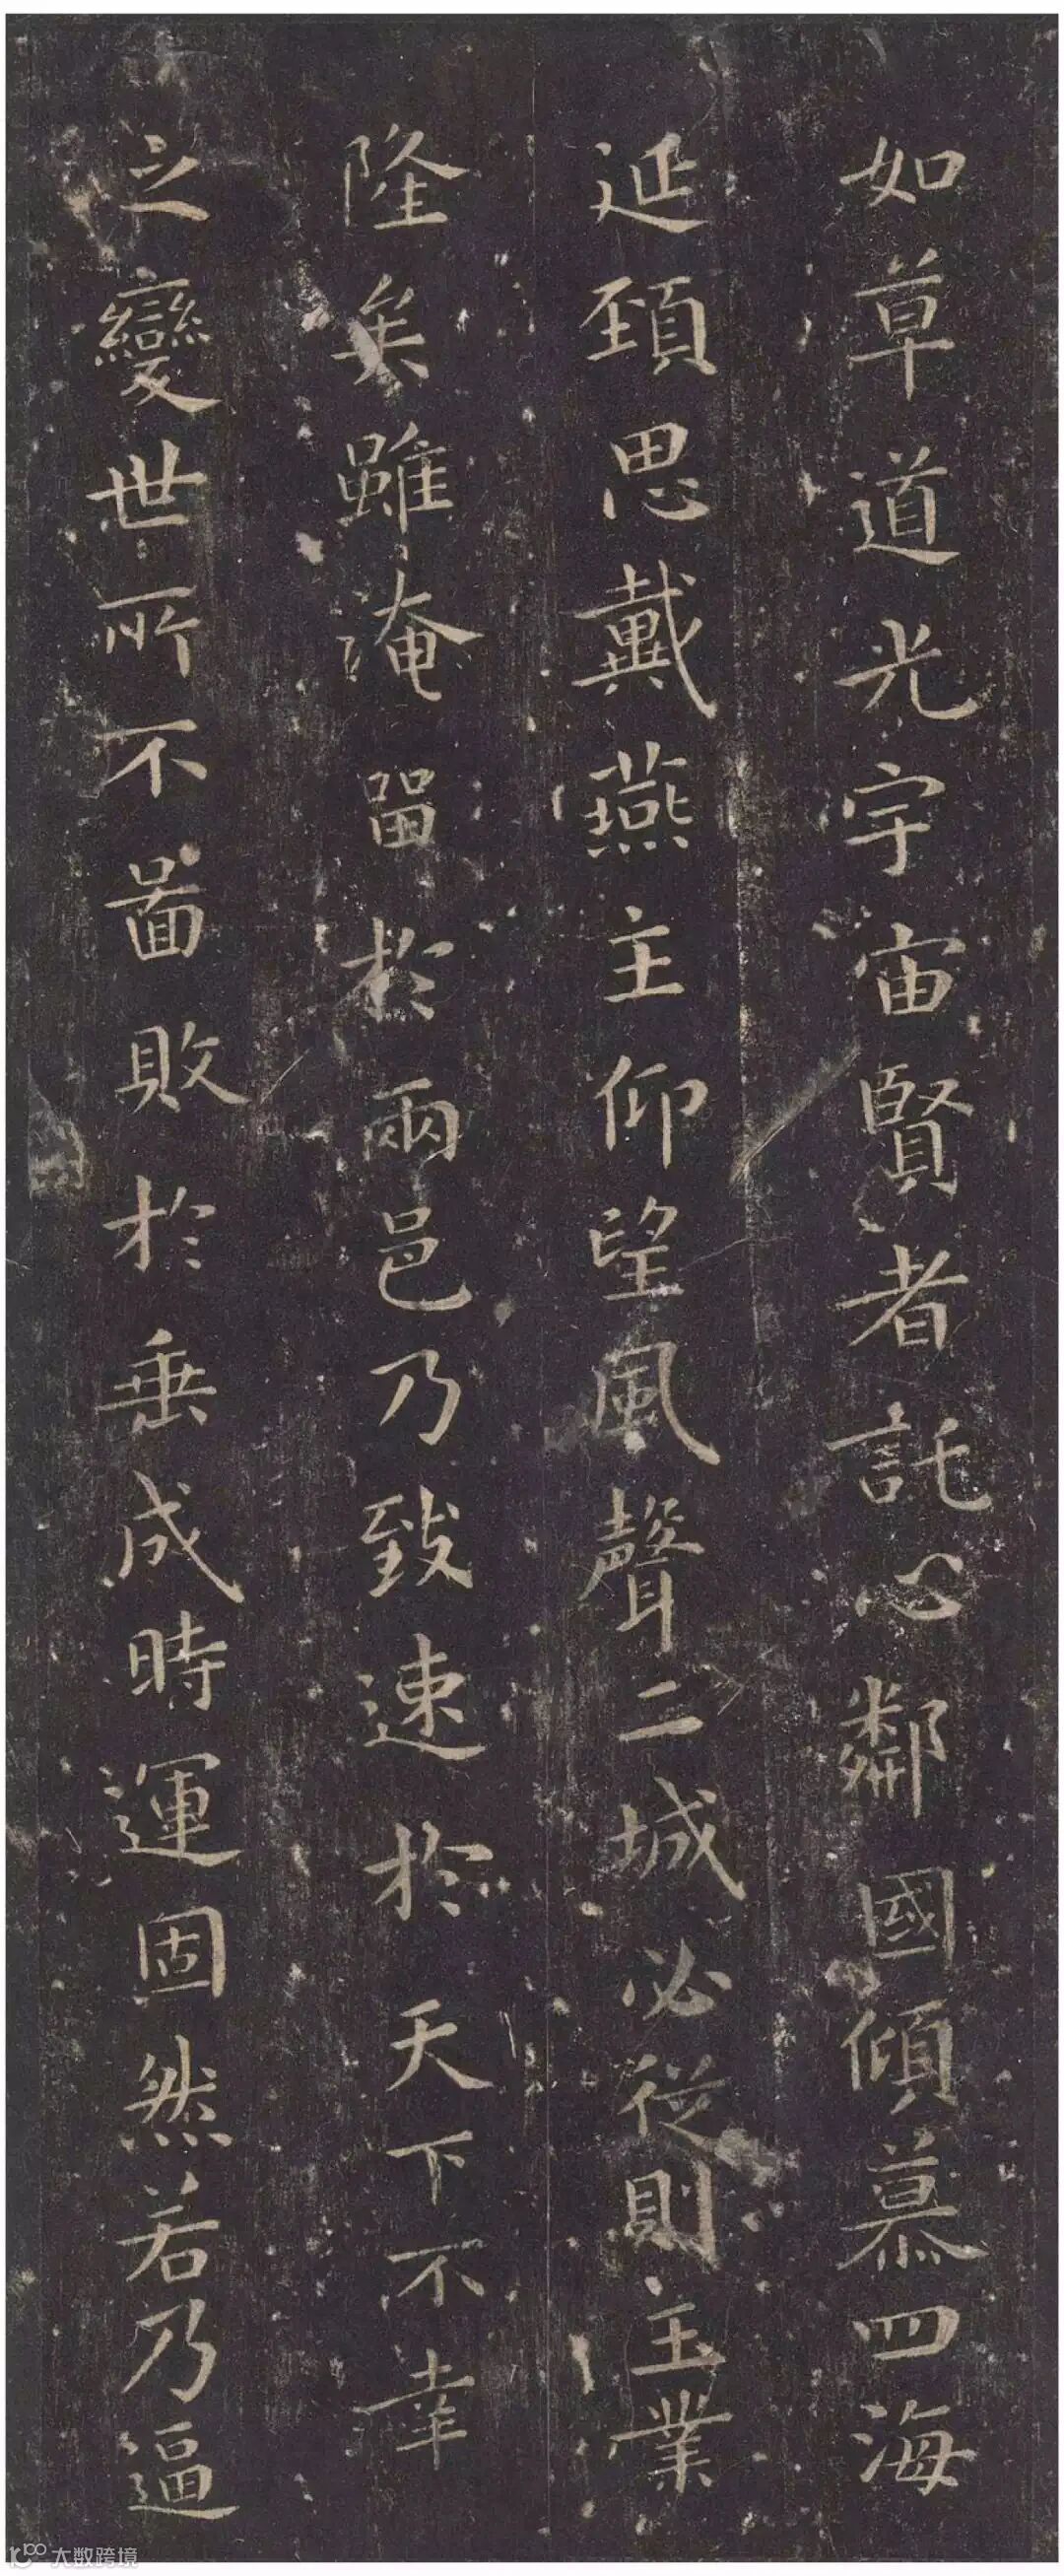 如草道光宇宙賢者託心鄰國傾慕四海
延頸思戴燕主仰望風聲二城必從則王業
隆矣雖淹留於兩邑乃致速於天下不幸
之變世所不圖敗於垂成時運固然若乃逼
大数跨境